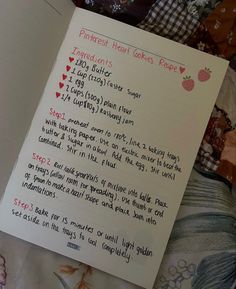 Pinterest Heart Cookies Recipe
Ingredients
180g Butter
1 cup (220g) Caster Sugar
1 egg
2 cups (300g) plain flour
1/4 cup (80g) Rasberry jam
Step 1 preheat oven to 170°c, line 2 baking trays
with baking paper. Use an electric mixer to beat the
butter & sugar in a bowl. Add the egg, stir until
combined. Stir in the flour.
Step 2 Roll table spoonfuls of mixture into balls. Place
on trays (allow room for spreading). Use thumb or end
of spoon to make a heart shape and place Jam into
indentations.
Step 3 Bake for 15 minutes or until light golden
set aside on the trays to cool completely.